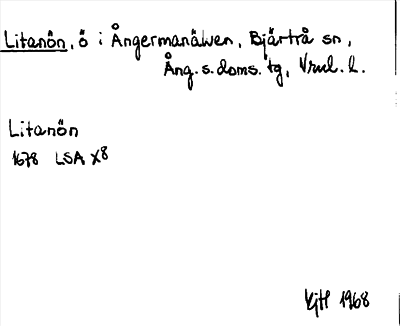 Litanön, ö i Ångermanälven, Bjärtrå sn,
Ång. s. doms. tg, Vrnl. l.
Litanön
1678 LSA X8
KjH 1968